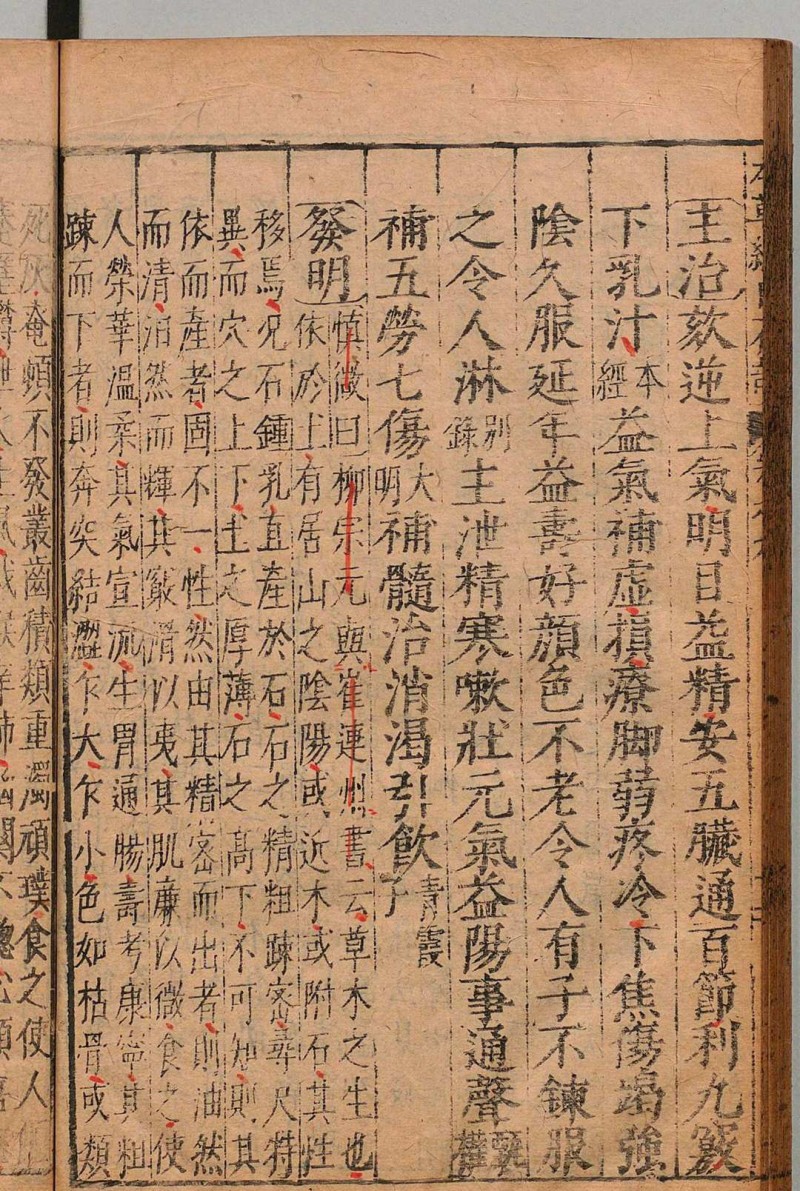 主治欬逆上氣明目益精安五臟通百節利九竅
下乳汁本經益氣補虛損療脚弱疼冷下焦傷竭強
陰久服延年益壽好顔色不老令人有子不鍊服
之令人淋別錄主泄精寒嗽壯元氣益陽事通聲甄權
補五勞七傷大明補髓治消渴引飲青霞子
發明慎微曰柳宗元與崔連州書云草木之生也
依於土有居山之陰陽或近木或附石其性
移焉况石鍾乳直產於石石之精粗踈密尋尺特
異而穴之上下土之厚薄石之高下不可知則其
依而產者固不一性然由其精密而出者則油然
而清泊然而輝其竅滑以夷其肌廉以微食之使
人榮華溫柔其氣宣流生胃通腸壽考康寧其粗
踈而下者則奔突結澀乍大乍小色如枯骨或類
死灰奄頓不發叢齒積類重濁頑璞食之使人